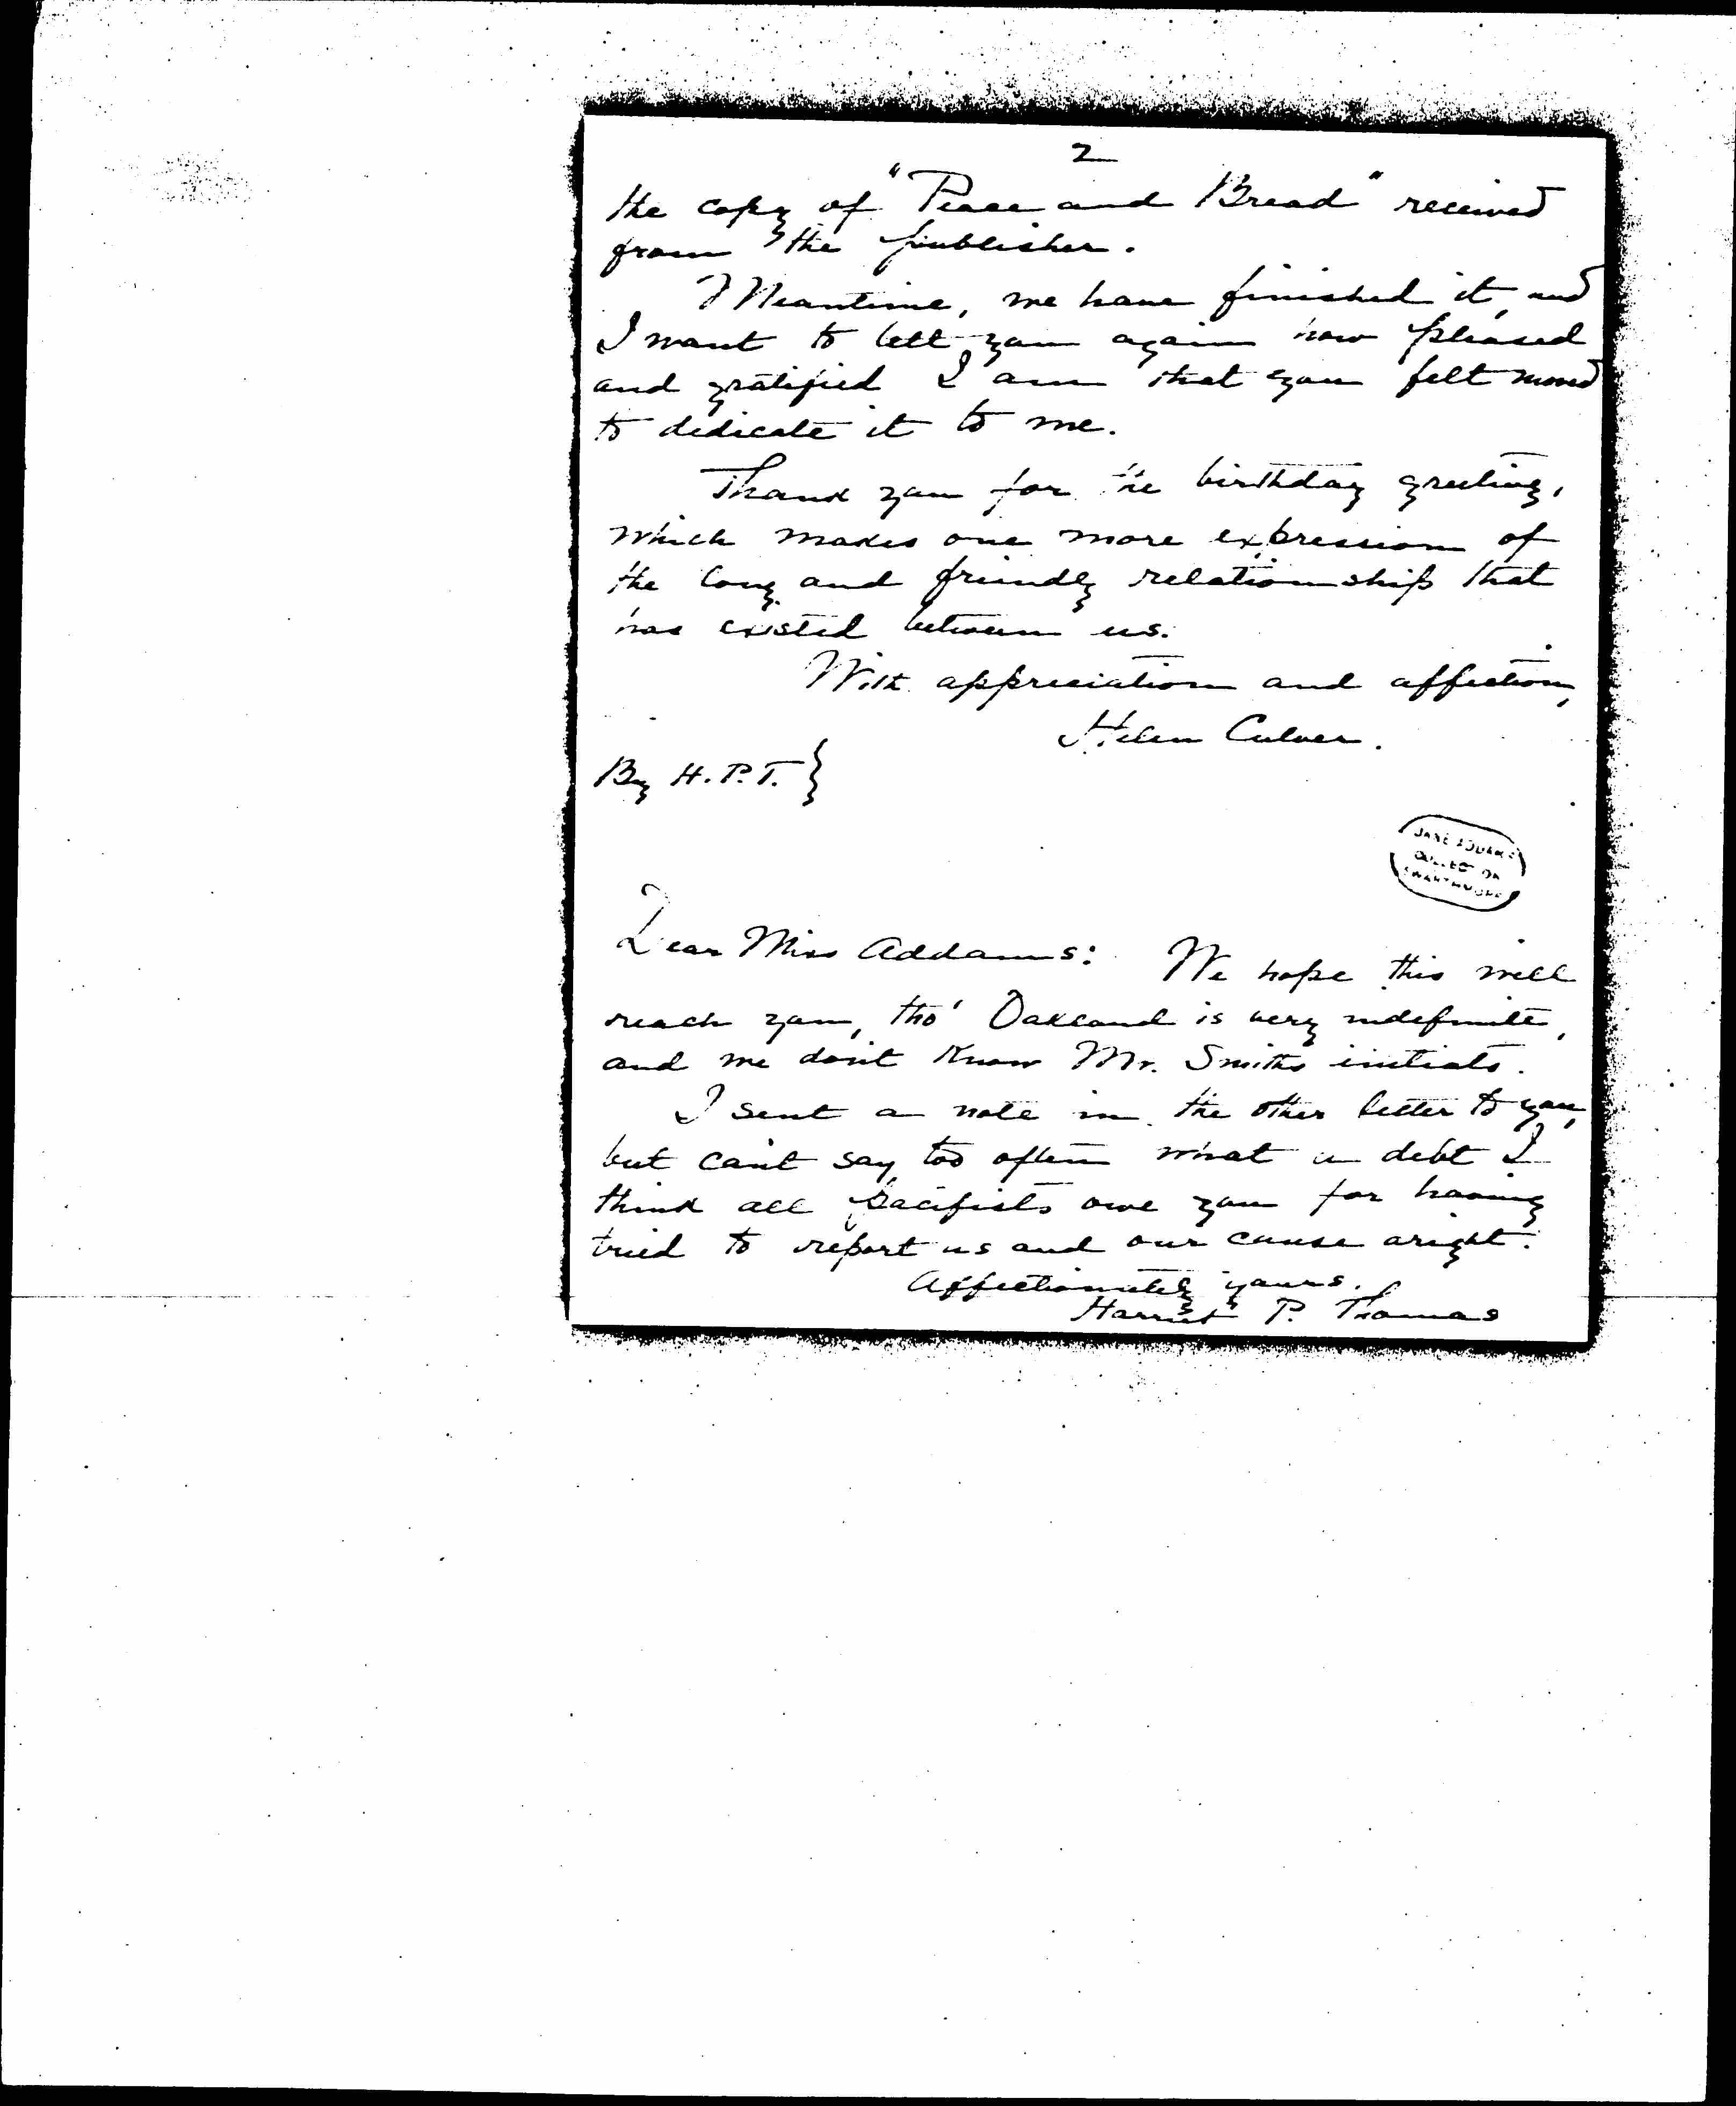 2
the copy of "Peace and Bread" received
from the publisher.
Meantime, we have finished it, and
I want to tell you again how pleased
and gratified I am that you felt moved
to dedicate it to me.
Thank you for the birthday greeting,
which makes one more expression of
the long and friendly relationship that
has existed between us.
With appreciation and affection,
Helen Culver.
By H.P.T. }
JANE ADDAMS
COLLECTION
SWARTHMORE
Dear Miss Addams: We hope this will
reach you, tho' Oakland is very indefinite,
and we don't know Mr. Smiths initials.
I sent a note in the other letter to you,
but can't say too often what a debt I
think all pacifists owe you for having
tried to report us and our cause aright.
Affectionately yours.
Harriet P. Thomas